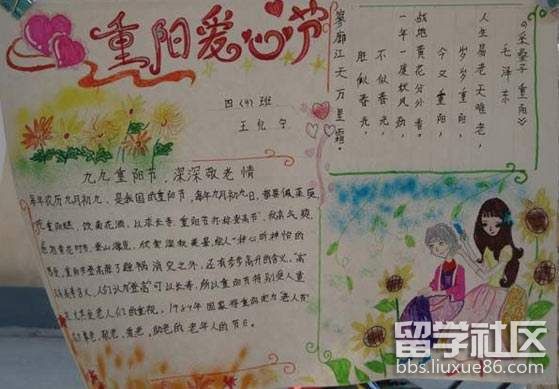 重阳爱心节
四（4）班
王亿宁
九九重阳节，深深敬老情
每年农历九月初九，是我国的重阳节，每年九月初九日，都要佩茱萸，
重阳糕，饮菊花酒，以求长寿。重阳节亦称登高节，秋高气爽，
登山海览，欣赏温秋美景，给人一种心旷神怡的
重阳节登高除了避祸消灾之外，还有步步高升的含义，"高"
人们认为"登高"可以长寿，所以重阳节特别受人重
老人们的重视。1989年国家将重阳定为老人节
敬老、爱老、助老的老年人的节日。
《采桑子 重阳》
毛泽东
人生易老天难老，
岁岁重阳，
今又重阳，
战地黄花分外香。
一年一度秋风劲，
不似春光，
胜似春光，
寥廓江天万里霜。
留学社区
bbs.liuxue86.com